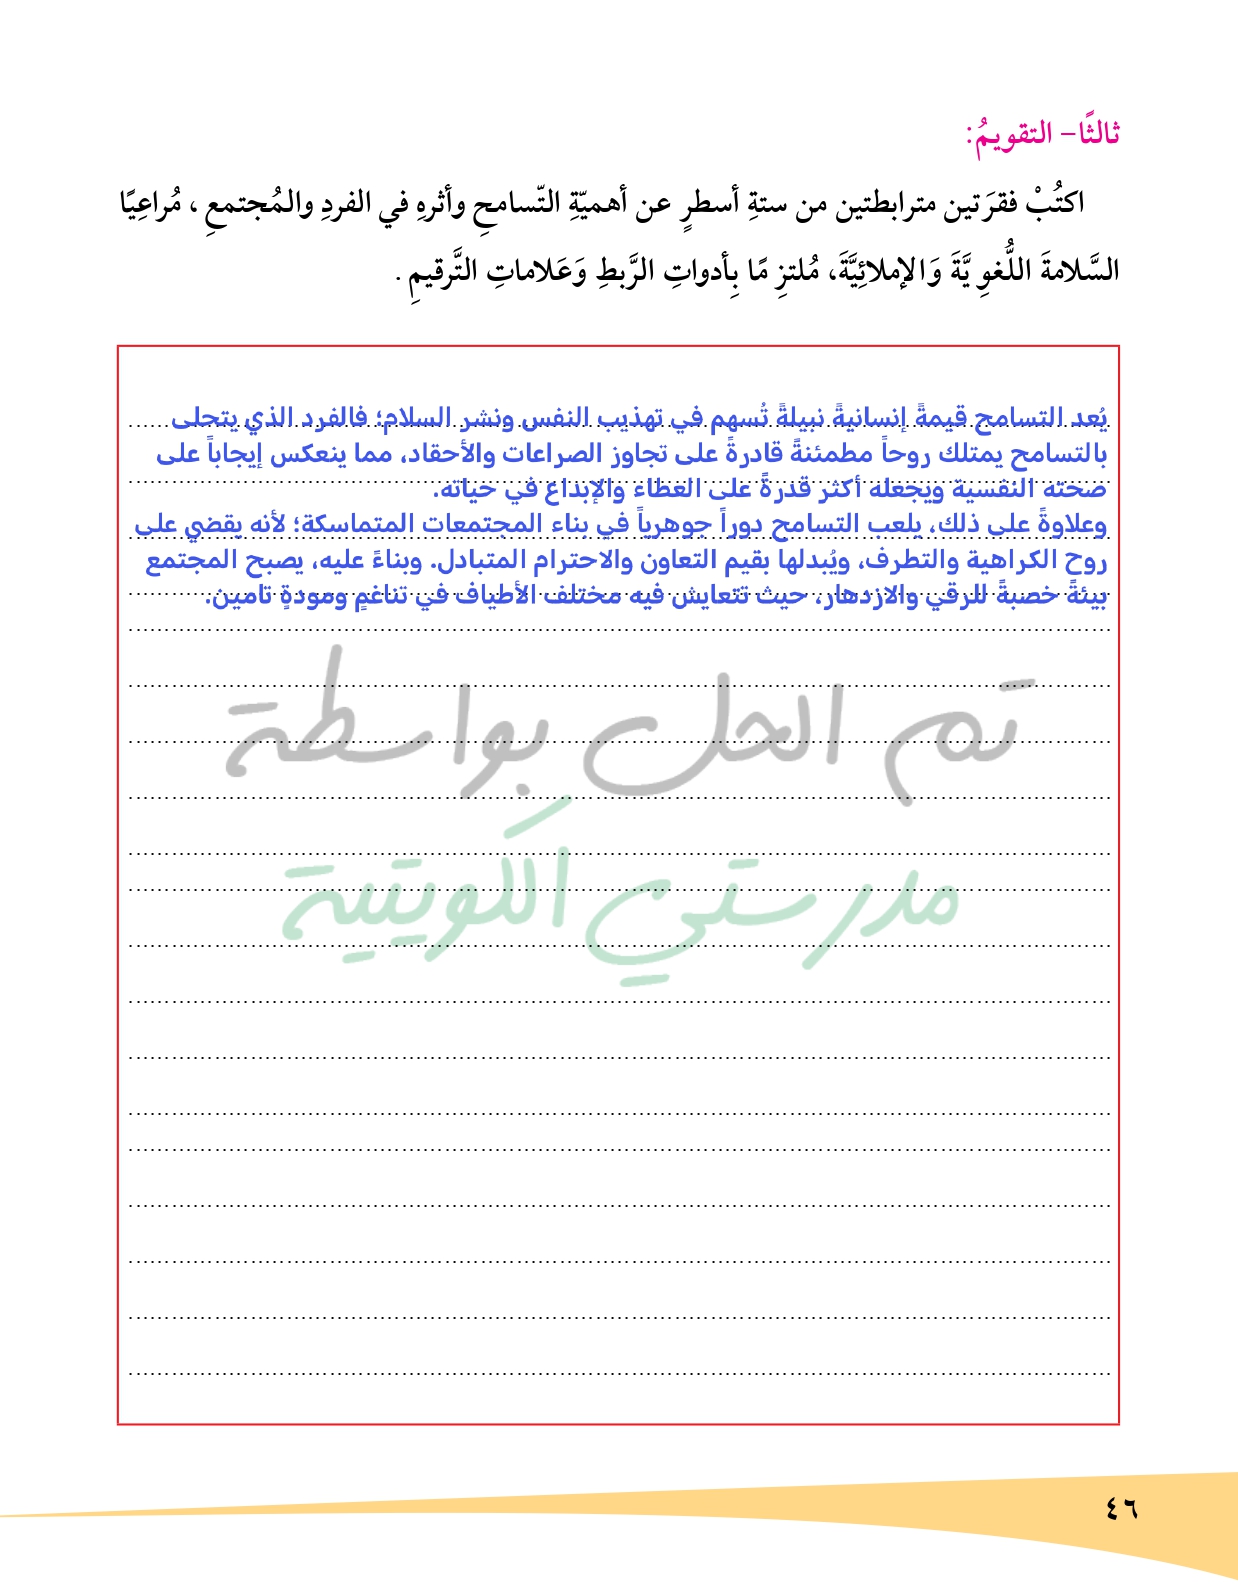 ثالثًا– التقويمُ:
اكتُبْ فقرَتين مترابطتين من ستةِ أسطرٍ عن أهميّةِ التّسامحِ وأثرهِ في الفردِ والمُجتمعِ ، مُراعِيًا
السَّلامةَ اللُّغوِ يَّةَ وَالإملائِيَّةَ، مُلتزِ مًا بِأدواتِ الرَّبطِ وَعَلاماتِ التَّرقيمِ .
يُعد التسامح قيمةً إنسانيةً نبيلةً تُسهم في تهذيب النفس ونشر السلام؛ فالفرد الذي يتحلى
بالتسامح يمتلك روحاً مطمئنةً قادرةً على تجاوز الصراعات والأحقاد، مما ينعكس إيجاباً على
صحته النفسية ويجعله أكثر قدرةً على العطاء والإبداع في حياته.
وعلاوةً على ذلك، يلعب التسامح دوراً جوهرياً في بناء المجتمعات المتماسكة؛ لأنه يقضي على
روح الكراهية والتطرف، ويُبدلها بقيم التعاون والاحترام المتبادل. وبناءً عليه، يصبح المجتمع
بيئةً خصبةً للرقي والازدهار، حيث تتعايش فيه مختلف الأطياف في تناغمٍ ومودةٍ تامين.
تم الحل بواسطة
مدرستي الكويتية
٤٦